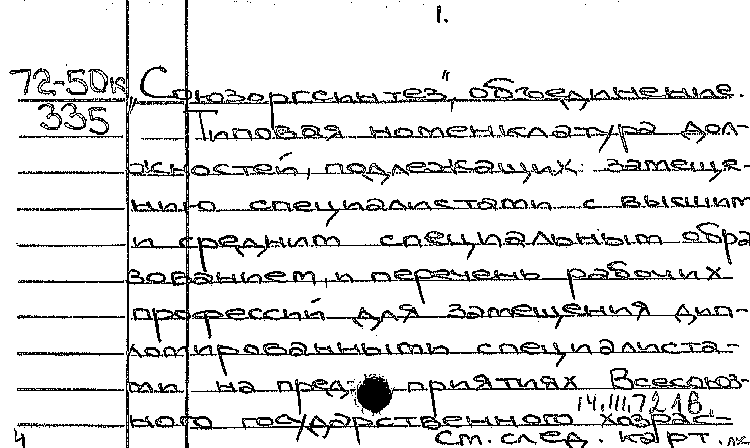 1.
72-50к „Союзоргсинтез", объединение.
335 Типовая номенклатура дол-
жностей, подлежащих замеще-
нию специалистами с высшим
и средним специальным обра
зованием, и перечень рабочих
профессий для замещения дип-
ломированными специалиста-
ми на пред- приятиях Всесоюз-
14.III.72 1В
ного государственного хозрас-
См. след. карт.